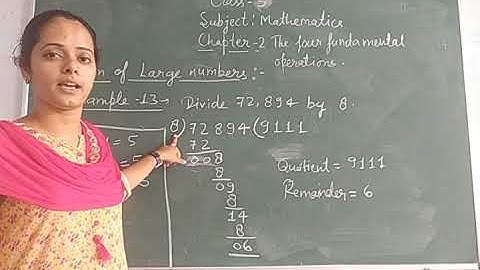 Class-5
Subject: Mathematics
Chapter-2 The four fundamental
operations.
of Large numbers:-
Example-13→ Divide 72,894 by 8.
8)72894(9111
72
008
8
09
8
14
8
06
Quotient = 9111
Remainder = 6
= 5